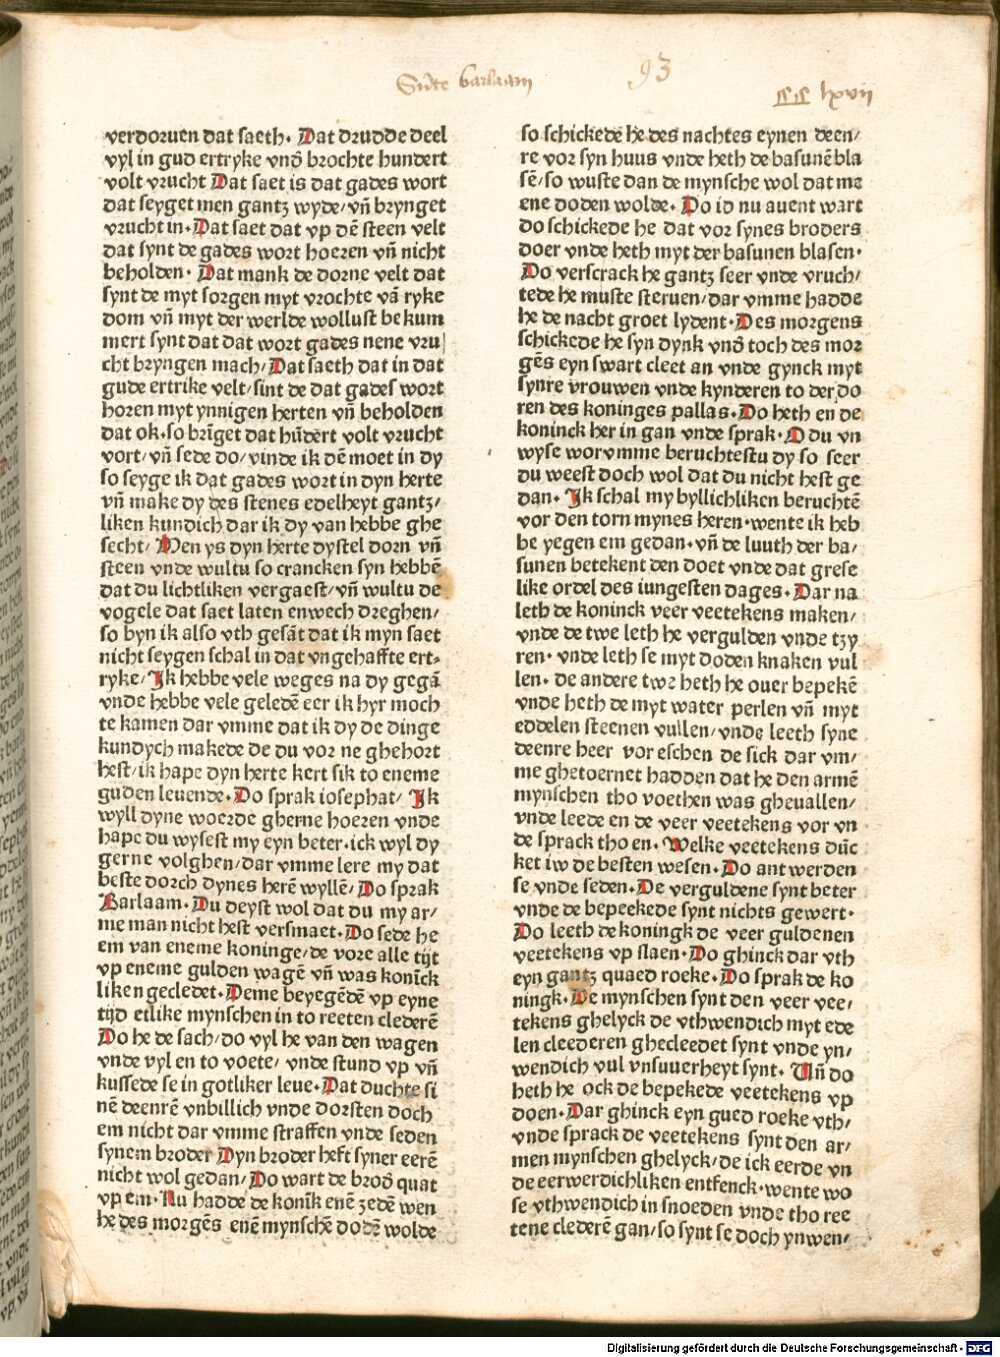 Sūte barlaam
93
lxvii
verdoruen dat saeth. Dat drudde deel
vyl in gud ertryke vnd̄ brochte hundert
volt vrucht Dat saet is dat gades wort
dat seyget men gantz wyde/vn̄ brynget
vrucht in. Dat saet dat vp dē steen velt
dat synt de gades wort hoeren vn̄ nicht
beholden. Dat mank de dorne velt dat
synt de myt sorgen myt vrochte vā ryke
dom vn̄ myt der werlde wollust be kum
mert synt dat dat wort gades nene vru
cht bryngen mach/Dat saeth dat in dat
gude ertrike velt/sint de dat gades wort
horen myt ynnigen herten vn̄ beholden
dat ok. so brīget dat hūdert volt vrucht
vort/vn̄ sede do/vinde ik dē moet in dy
so seyge ik dat gades wort in dyn herte
vn̄ make dy des stenes edelheyt gantz/
liken kundich dar ik dy van hebbe ghe
secht/ Men ys dyn herte dystel dorn vn̄
steen vnde wultu so crancken syn hebbē
dat du lichtliken vergaest/vn̄ wultu de
vogele dat saet laten enwech dreghen/
so byn ik also vth gesāt dat ik myn saet
nicht seygen schal in dat vngehaffte ert/
ryke/Ik hebbe vele weges na dy gegā
vnde hebbe vele geledē eer ik hyr moch
te kamen dar vmme dat ik dy de dinge
kundych makede de du vor ne ghehort
hest/ik hape dyn herte kert sik to eneme
guden leuende. Do sprak iosephat/ Ik
wyll dyne woerde gherne hoeren vnde
hape du wysest my eyn beter. ick wyl dy
gerne volghen/dar vmme lere my dat
beste dorch dynes herē wyllē/Do sprak
Barlaam. Du deyst wol dat du my ar/
me man nicht hest versmaet. Do sede he
em van eneme koninge/de vore alle tijt
vp eneme gulden wagē vn̄ was konīck
liken gecledet. Deme beyegēdē vp eyne
tijd etlike mynschen in to reeten clederē
Do he de sach/do vyl he van den wagen
vnde vyl en to voete/vnde stund vp vn̄
kussede se in gotliker leue. Dat duchte si
nē deenrē vnbillich vnde dorsten doch
em nicht dar vmme straffen vnde seden
synem broder Dyn broder heft syner eerē
nicht wol gedan/Do wart de brod̄ quat
vp em. Nu hadde de konīk enē zedē wen
he des morgēs enē mynschē dodē wolde
so schickede he des nachtes eynen deen/
re vor syn huus vnde heth de basunē bla
sē/so wuste dan de mynsche wol dat me
ene doden wolde. Do id nu auent wart
do schickede he dat vor synes broders
doer vnde heth myt der basunen blasen.
Do verscrack he gantz seer vnde vruch/
tede he muste steruen/dar vmme hadde
he de nacht groet lydent. Des morgens
schickede he syn dynk vnd̄ toch des mor
gēs eyn swart cleet an vnde gynck myt
synre vrouwen vnde kynderen to der do
ren des koninges pallas. Do heth en de
koninck her in gan vnde sprak. O du vn
wyse worvmme beruchtestu dy so seer
du weest doch wol dat du nicht hest ge
dan. Ik schal my byllichliken beruchtē
vor den torn mynes heren. wente ik heb
be yegen em gedan. vn̄ de luuth der ba/
sunen betekent den doet vnde dat grese
like ordel des iungesten dages. Dar na
leth de koninck veer veetekens maken/
vnde de twe leth he vergulden vnde tzy
ren. vnde leth se myt doden knaken vul
len. de andere twe heth he ouer bepekē
vnde heth de myt water perlen vn̄ myt
eddelen steenen vullen/vnde leeth syne
deenre heer vor eschen de sick dar vm/
me ghetoernet hadden dat he den armē
mynschen tho voethen was gheuallen/
vnde leede en de veer veetekens vor vn
de sprack tho en. Welke veetekens dūc
ket iw de besten wesen. Do ant werden
se vnde seden. De verguldene synt beter
vnde de bepeekede synt nichts gewert.
Do leeth de koningk de veer guldenen
veetekens vp slaen. Do ghinck dar vth
eyn gantz quaed roeke. Do sprak de ko
ningk. De mynschen synt den veer vee/
tekens ghelyck de vthwendich myt ede
len cleederen ghecleedet synt vnde yn/
wendich vul vnsuuerheyt synt. Vn̄ do
heth he ock de bepekede veetekens vp
doen. Dar ghinck eyn gued roeke vth/
vnde sprack de veetekens synt den ar/
men mynschen ghelyck/de ick eerde vn
de eerwerdichliken entfenck. wente wo
se vthwendich in snoeden vnde tho ree
tene clederē gan/so synt se doch ynwen/
Digitalisierung gefördert durch die Deutsche Forschungsgemeinschaft - DFG